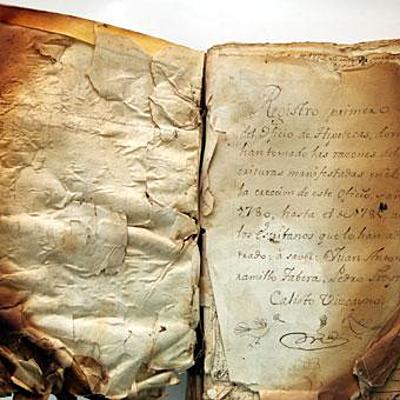 Registro primero
del Oficio de Hipotecas, don
han tomado las razones de
crituras manifestadas
la creccion de este Oficio,
1780, hasta el de 178
los Escribanos que lo han
a saver: Juan Anton
ramillo Tabera, Pedro
Calisto Vizcayno